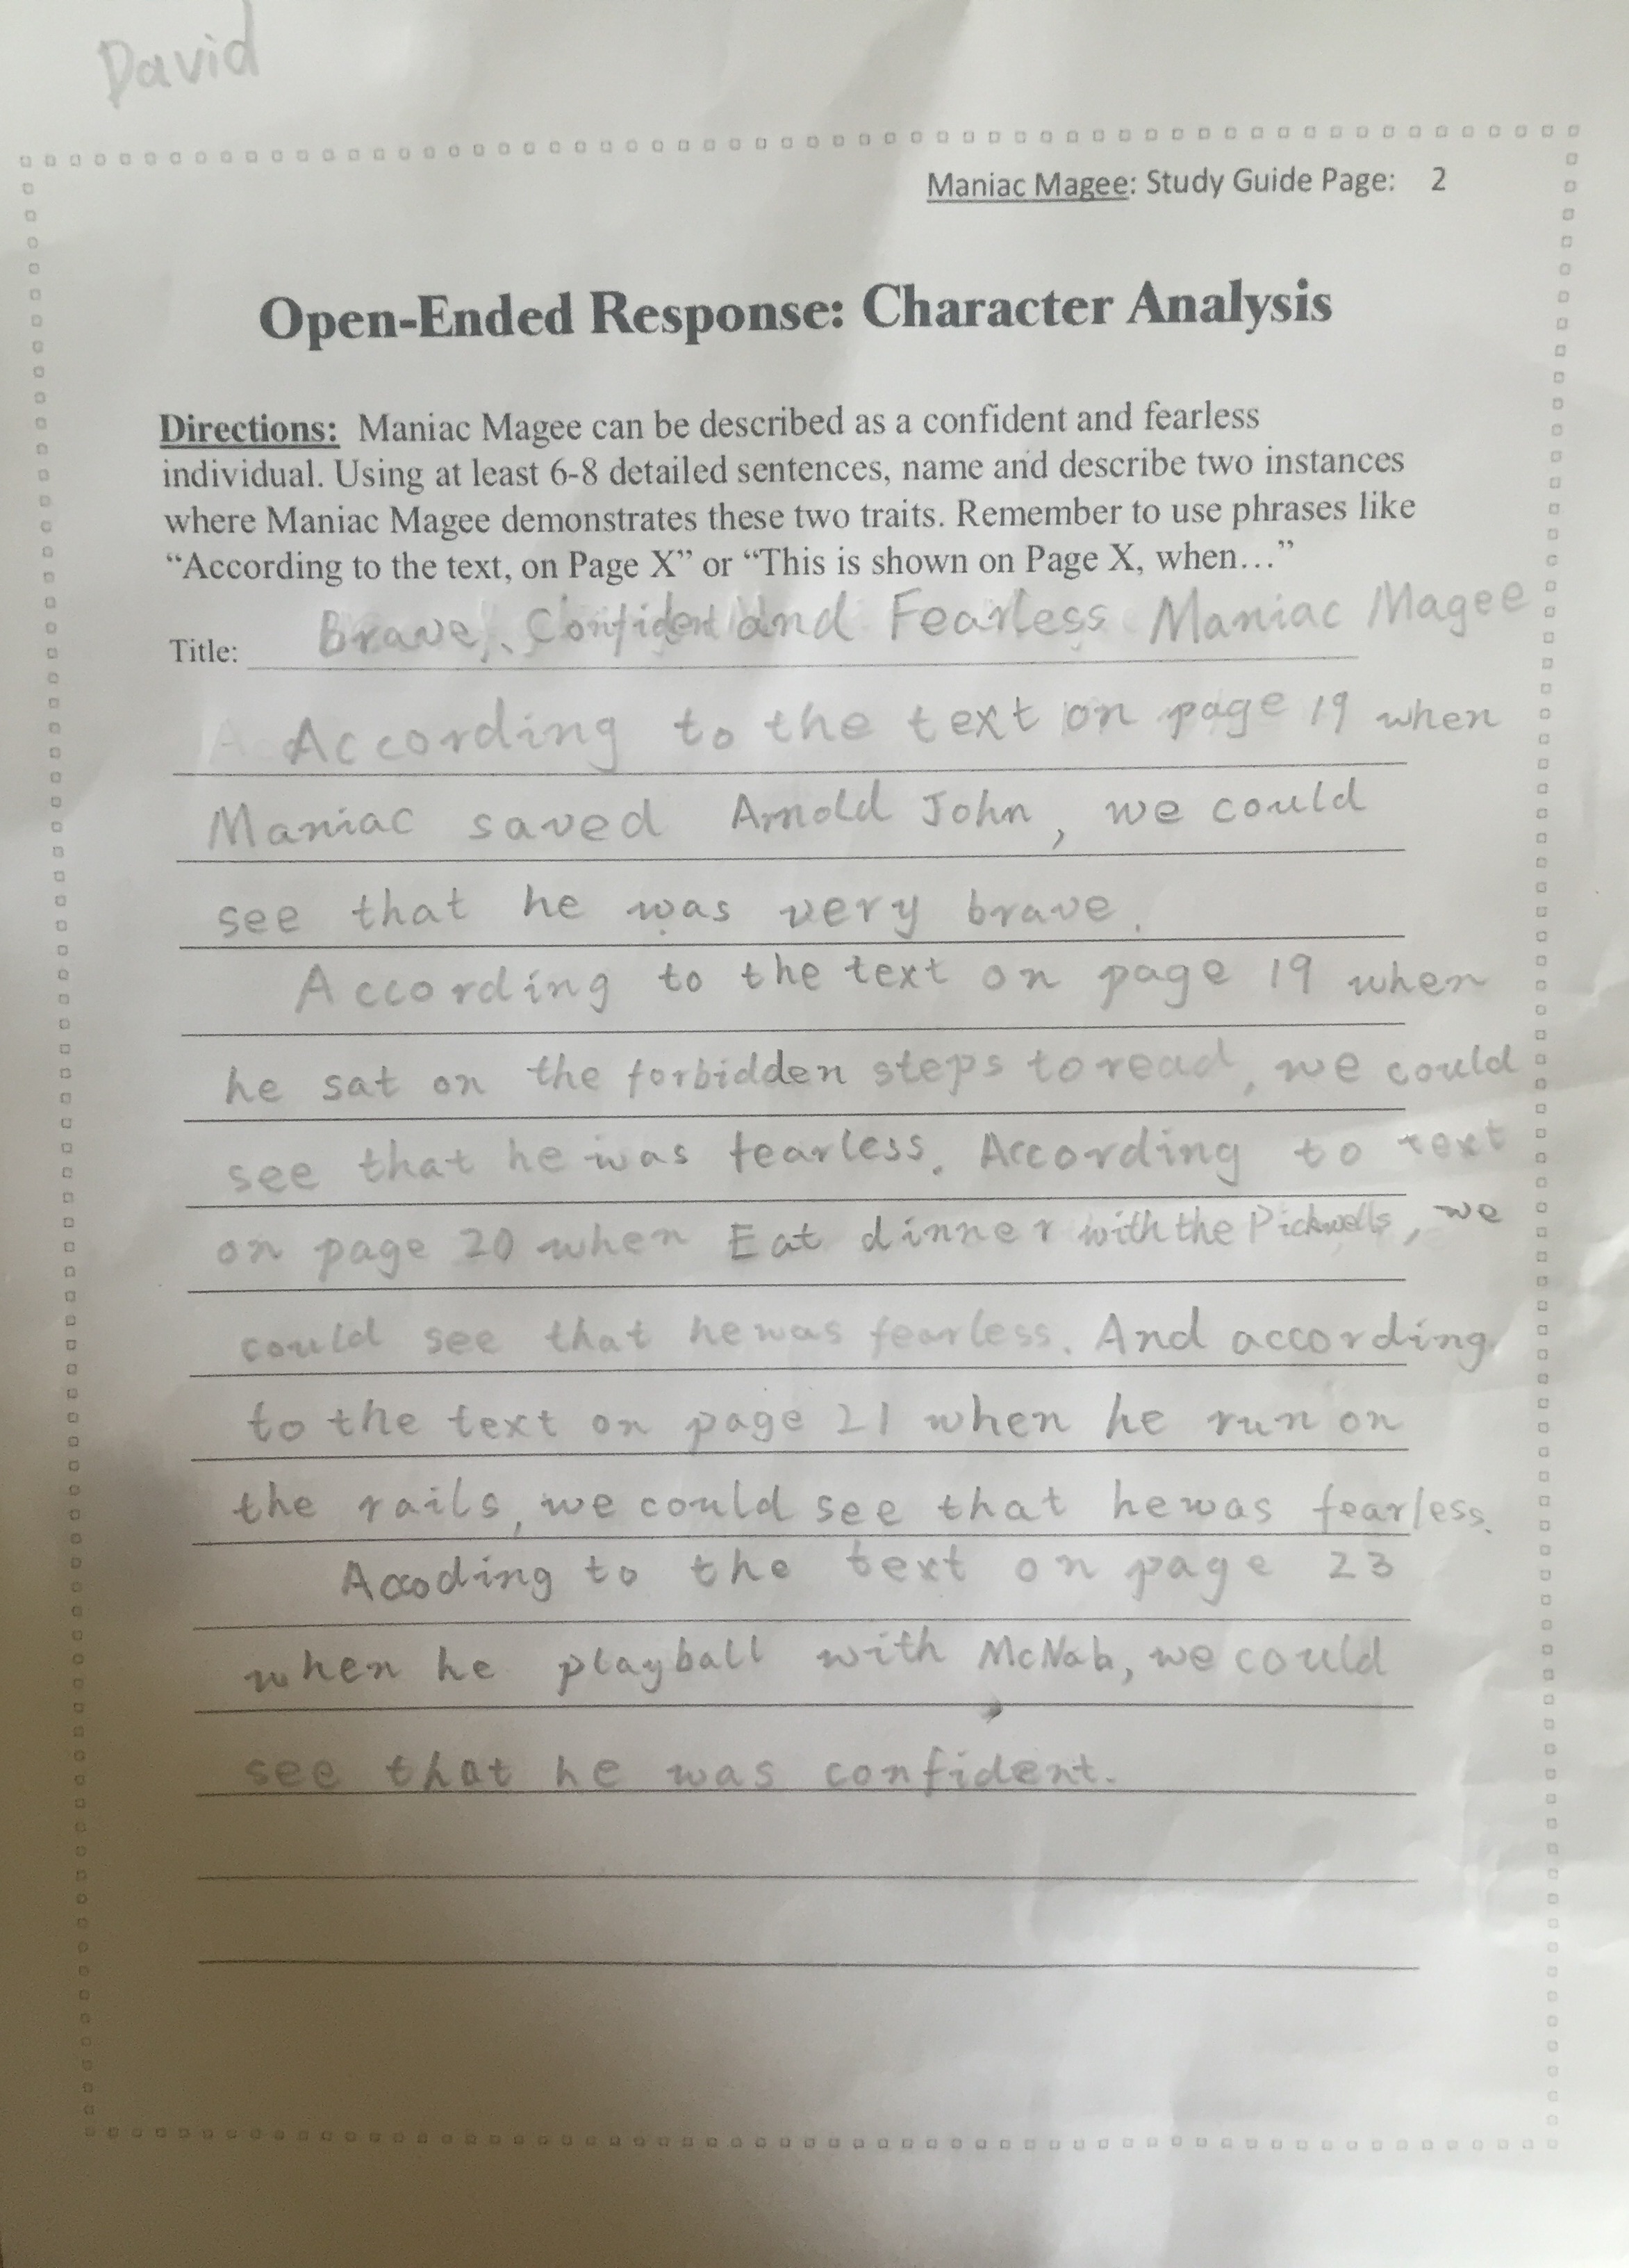 David
Maniac Magee: Study Guide Page: 2
Open-Ended Response: Character Analysis
Directions: Maniac Magee can be described as a confident and fearless
individual. Using at least 6-8 detailed sentences, name and describe two instances
where Maniac Magee demonstrates these two traits. Remember to use phrases like
“According to the text, on Page X” or “This is shown on Page X, when…”
Title: Brave, Confident and Fearless Maniac Magee
According to the text on page 19 when
Maniac saved Arnold John, we could
see that he was very brave.
According to the text on page 19 when
he sat on the forbidden steps to read, we could
see that he was fearless. According to text
on page 20 when Eat dinner with the Pickwells, we
could see that he was fearless. And according
to the text on page 21 when he run on
the rails, we could see that he was fearless.
Accoding to the text on page 23
when he playball with McNab, we could
see that he was confident.